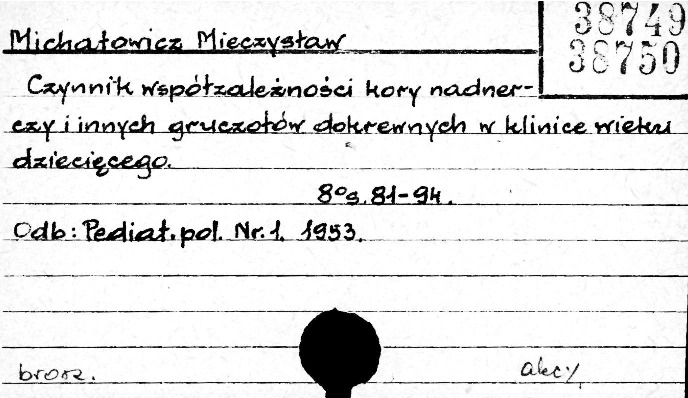 38749
38750
Michałowicz Mieczysław
Czynnik współzależności kory nadner-
czy i innych gruczołów dokrewnych w klinice wieku
dziecięcego.
8° s. 81-94.
Odb: Pediat. pol. Nr. 1. 1953.
brosz. akc.